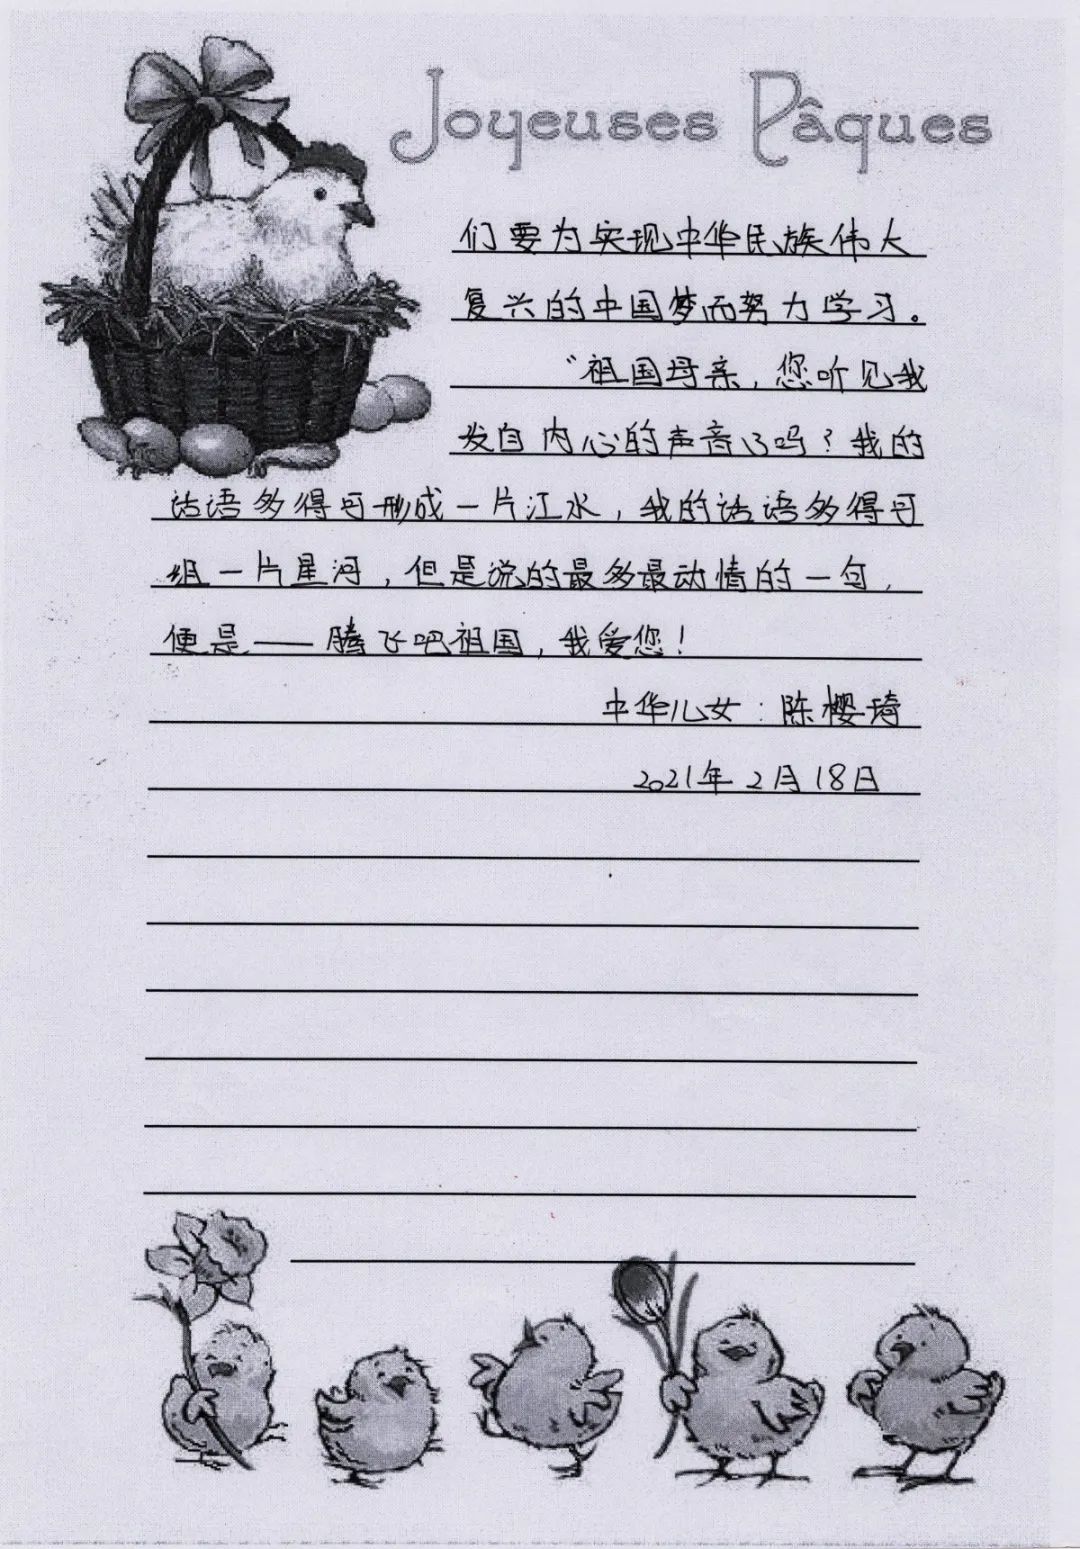 Joyeuses Pâques
们要为实现中华民族伟大
复兴的中国梦而努力学习。
“祖国母亲，您听见我
发自内心的声音了吗？我的
话语多得可形成一片江水，我的话语多得可
组一片星河，但是说的最多最动情的一句，
便是——腾飞吧祖国，我爱您！
中华儿女：陈樱琦
2021年2月18日